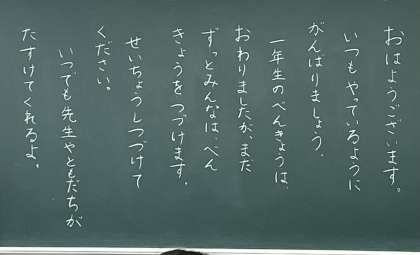 おはようございます。
いつもやっているように
がんばりましょう。
一年生のべんきょうは、
おわりましたが、まだ
ずっとみんなは、べん
きょうをつづけます。
せいちょうしつづけて
ください。
いつでも先生やともだちが
たすけてくれるよ。